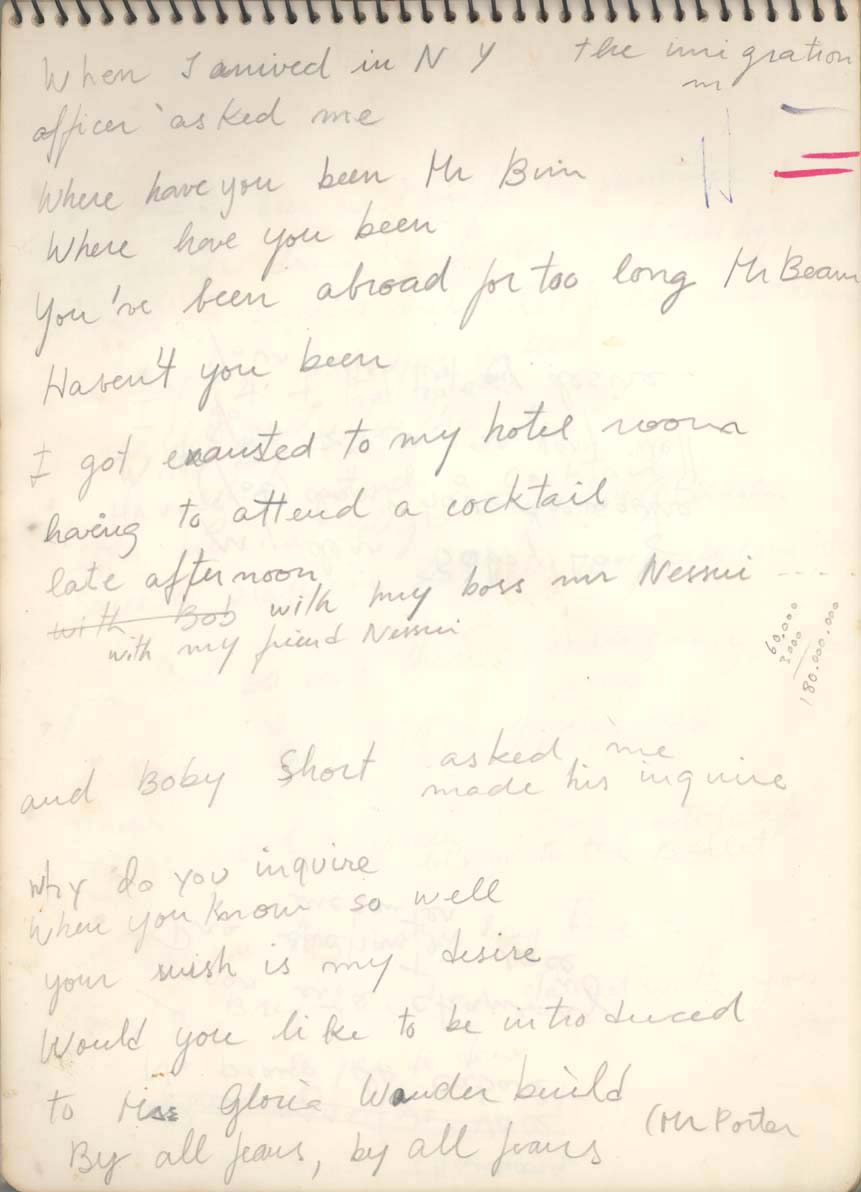 When I arrived in N Y the imigration
m
officer asked me
Where have you been Mr Bim
Where have you been
You've been abroad for too long Mr Beam
Haven't you been
I got exausted to my hotel room
having to attend a cocktail
late afternoon
with Bob with my boss mr Nessui ....
with my friend Nessui
60.000
3000
180.000.000
and Boby Short asked me
made his inquire
Why do you inquire
When you know so well
your wish is my desire
Would you like to be introduced
to Miss Gloria Wanderbuild
(Mr Porter
By all means, by all means